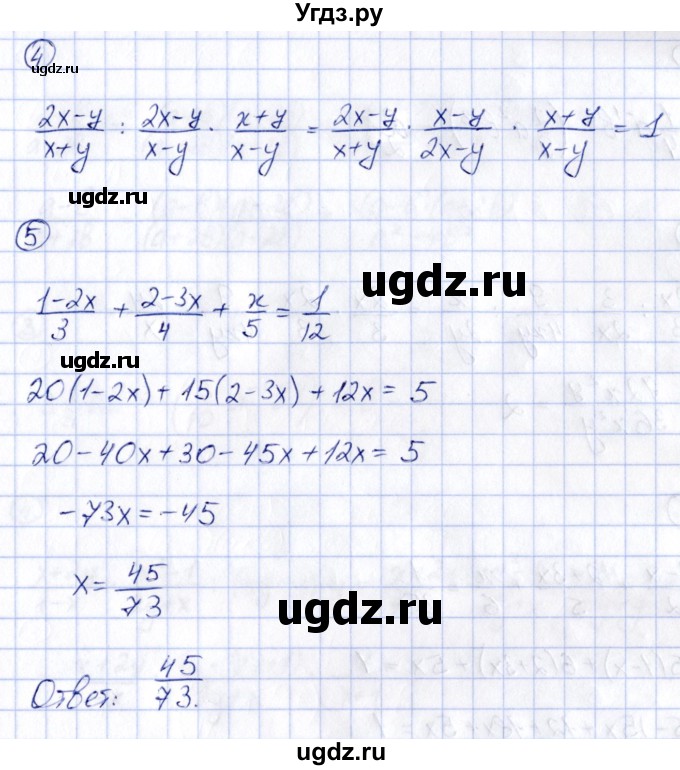 Угдз.ру
4
ugdz.ru
(2x-y)/(x+y) : (2x-y)/(x-y) · (x+y)/(x-y) = (2x-y)/(x+y) · (x-y)/(2x-y) · (x+y)/(x-y) = 1
ugdz.ru
5
ugdz.ru
(1-2x)/3 + (2-3x)/4 + x/5 = 1/12
ugdz.ru
20(1-2x)+15(2-3x)+12x=5
20-40x+30-45x+12x=5
-73x=-45
x=45/73
ugdz.ru
Ответ: 45/73.
ugdz.ru
ugdz.ru